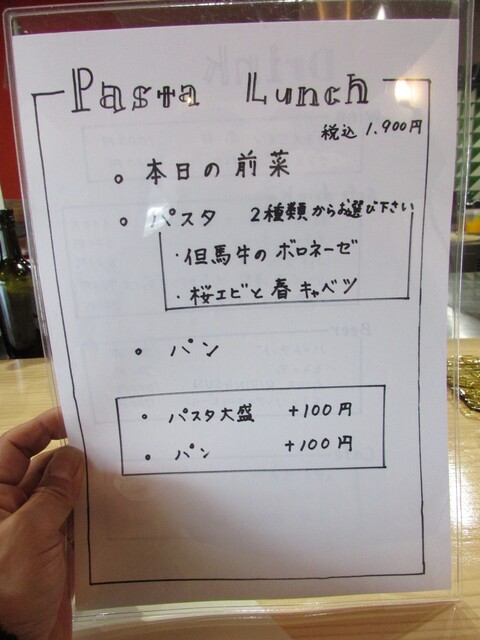 Pasta Lunch
税込 1.900円
○ 本日の前菜
○ パスタ 2種類からお選び下さい
・但馬牛のボロネーゼ
・桜エビと春キャベツ
○ パン
○ パスタ大盛 +100円
○ パン +100円
Drink
Beer